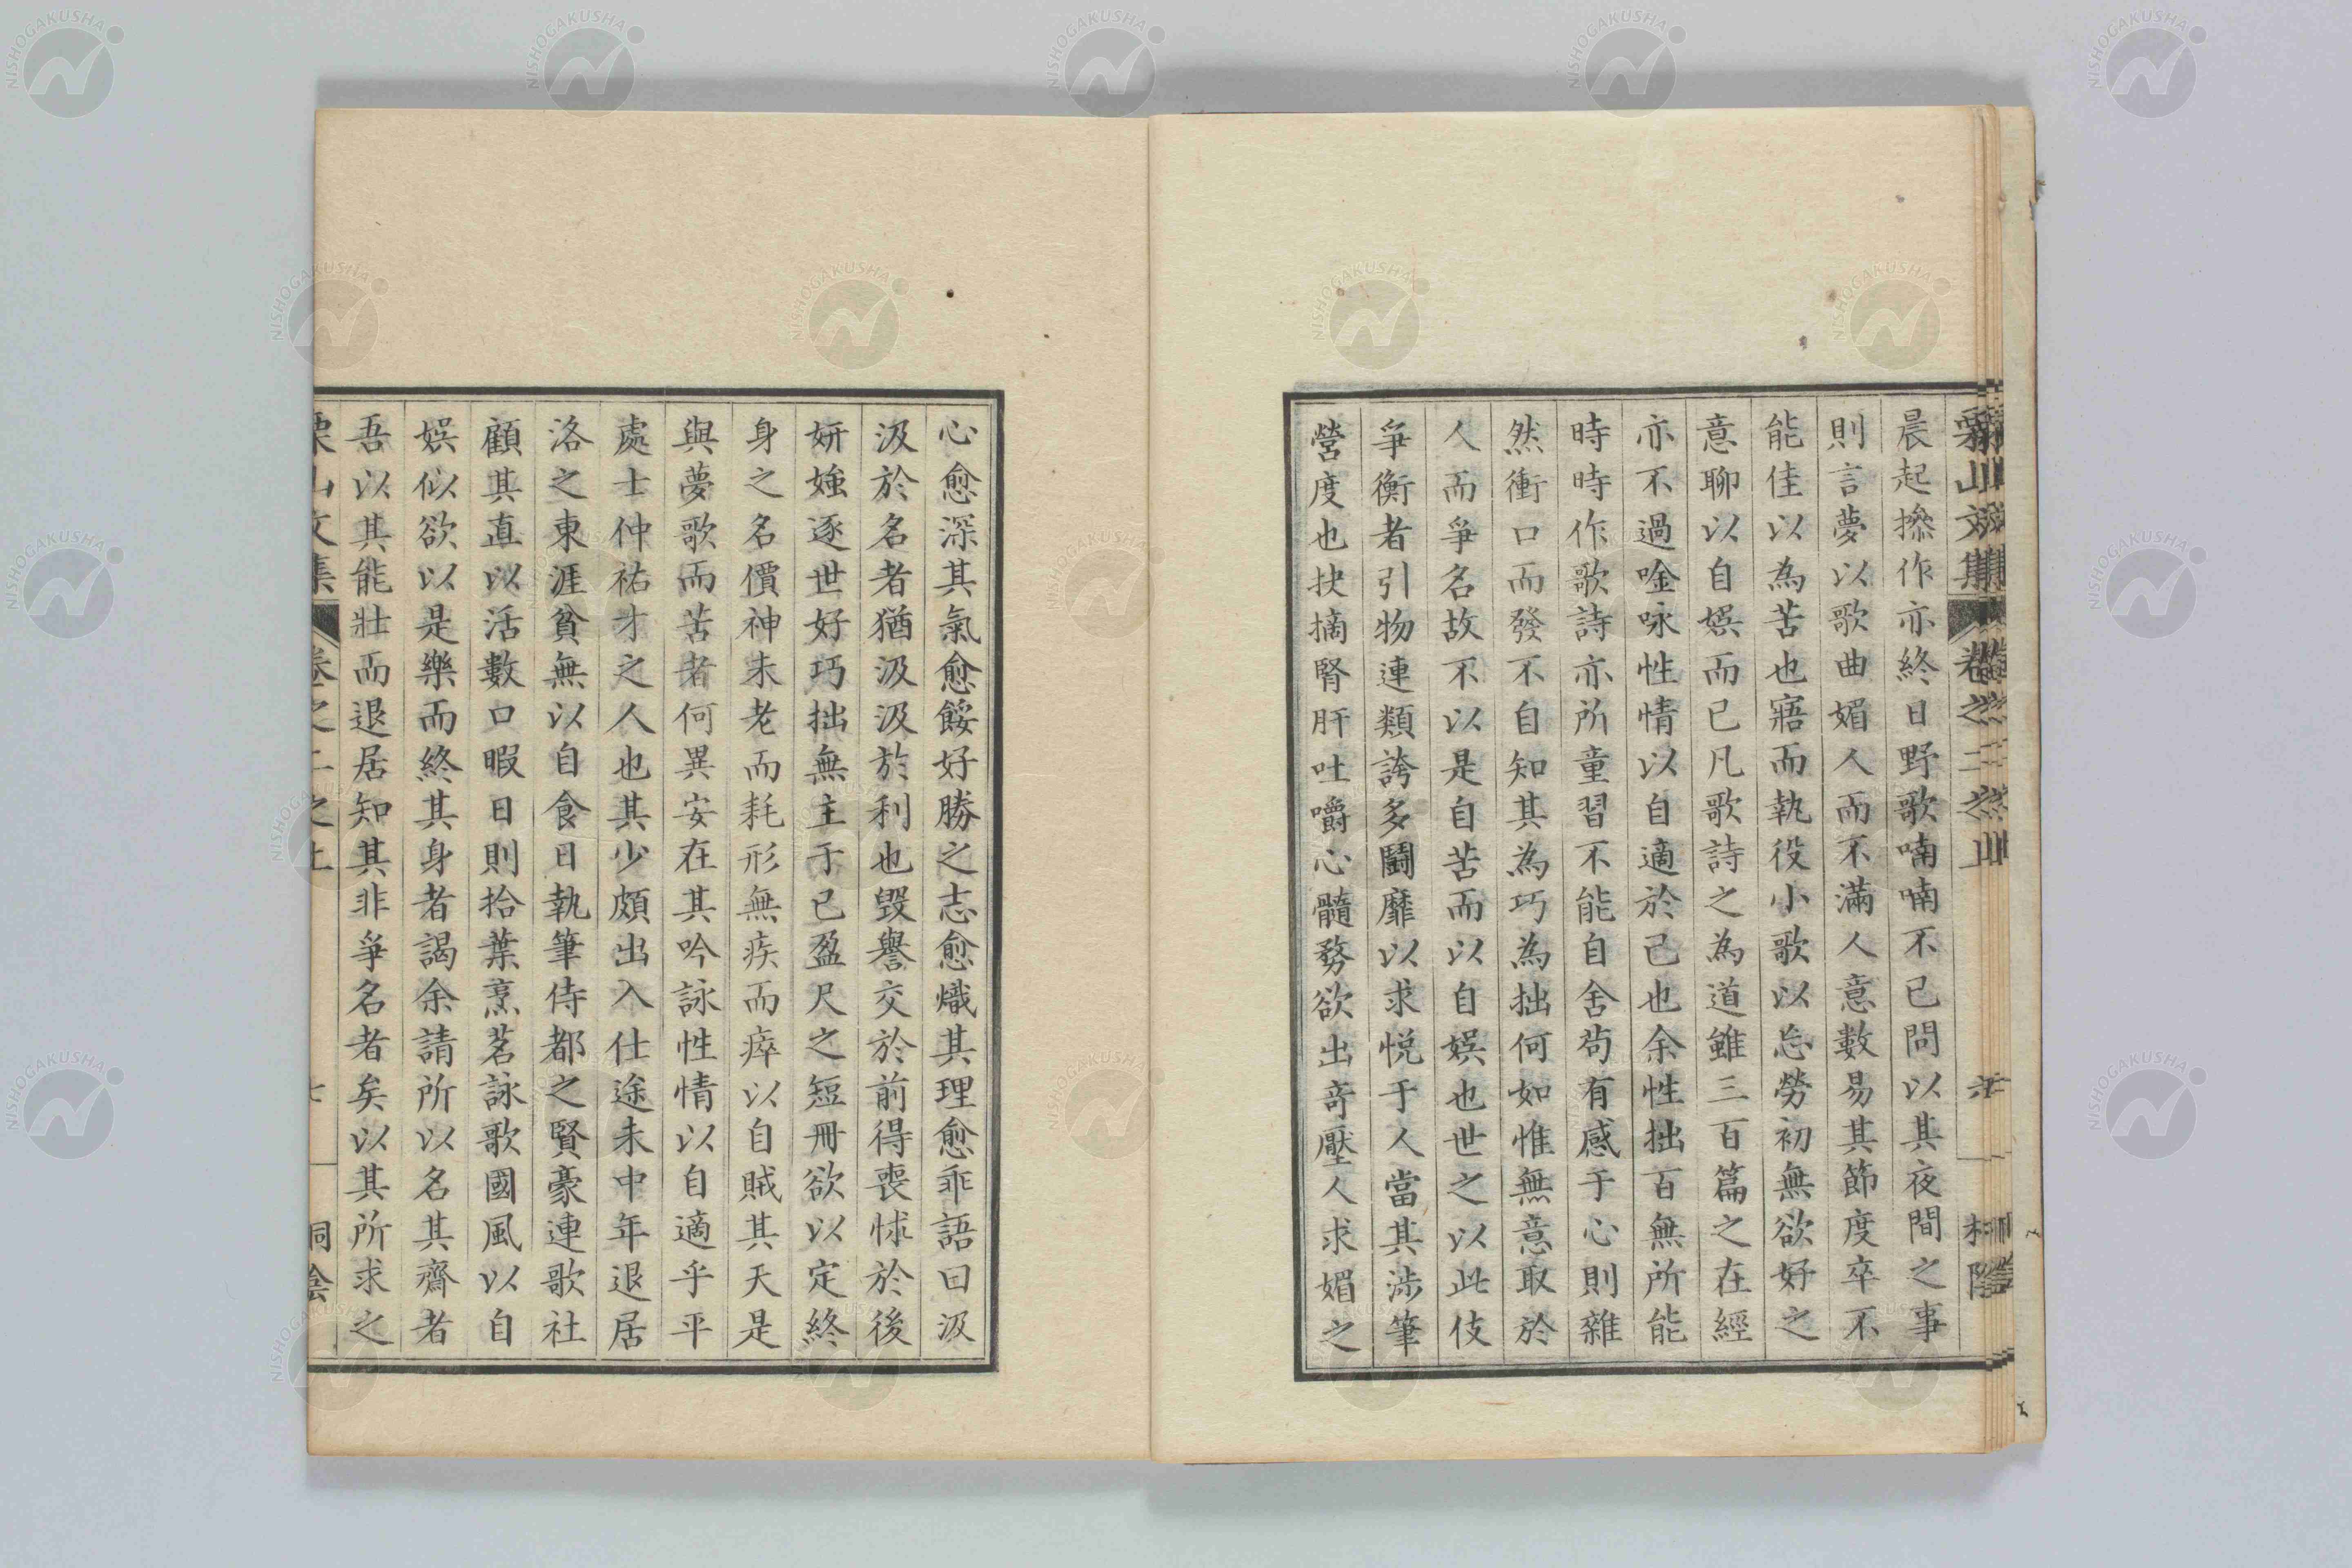 晨起操作亦終日野歌喃喃不已問以其夜間之事
則言夢以歌曲媚人而不滿人意數易其節度卒不
能佳以為苦也寤而執役小歌以忘勞初無欲好之
意聊以自娯而已凡歌詩之為道雖三百篇之在經
亦不過唫咏性情以自適於己也余性拙百無所能
時時作歌詩亦所童習不能自舍茍有感于心則雜
然衝口而發不自知其為巧為拙何如惟無意取於
人而爭名故不以是自苦而以自娯也世之以此伎
爭衡者引物連類誇多鬪靡以求悅于人當其涉筆
營度也抉摘腎肝吐嚼心髓務欲出奇壓人求媚之
心愈深其氣愈餒好勝之志愈熾其理愈乖語曰汲
汲於名者猶汲汲於利也毀譽交於前得喪怵於後
妍媸逐世好巧拙無主于已盈尺之短冊欲以定終
身之名價神未老而耗形無疾而瘁以自賊其天是
與夢歌而苦者何異安在其吟詠性情以自適乎平
處士仲祐才之人也其少頗出入仕途未中年退居
洛之東涯貧無以自食日執筆侍都之賢豪連歌社
顧其直以活數口暇日則拾葉烹茗詠歌國風以自
娯似欲以是樂而終其身者謁余請所以名其齋者
吾以其能壯而退居知其非爭名者矣以其所求之
栗山文集 卷之二之上 七 桐陰
NISHOGAKUSHA